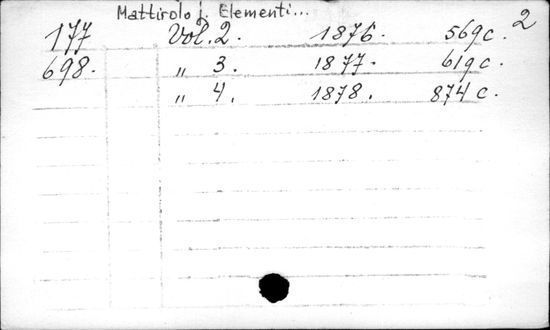 Mattirolo L. Elementi... 2
177 Vol. 2. 1876. 569 c.
698. " 3. 1877. 619 c.
" 4. 1878. 874 c.